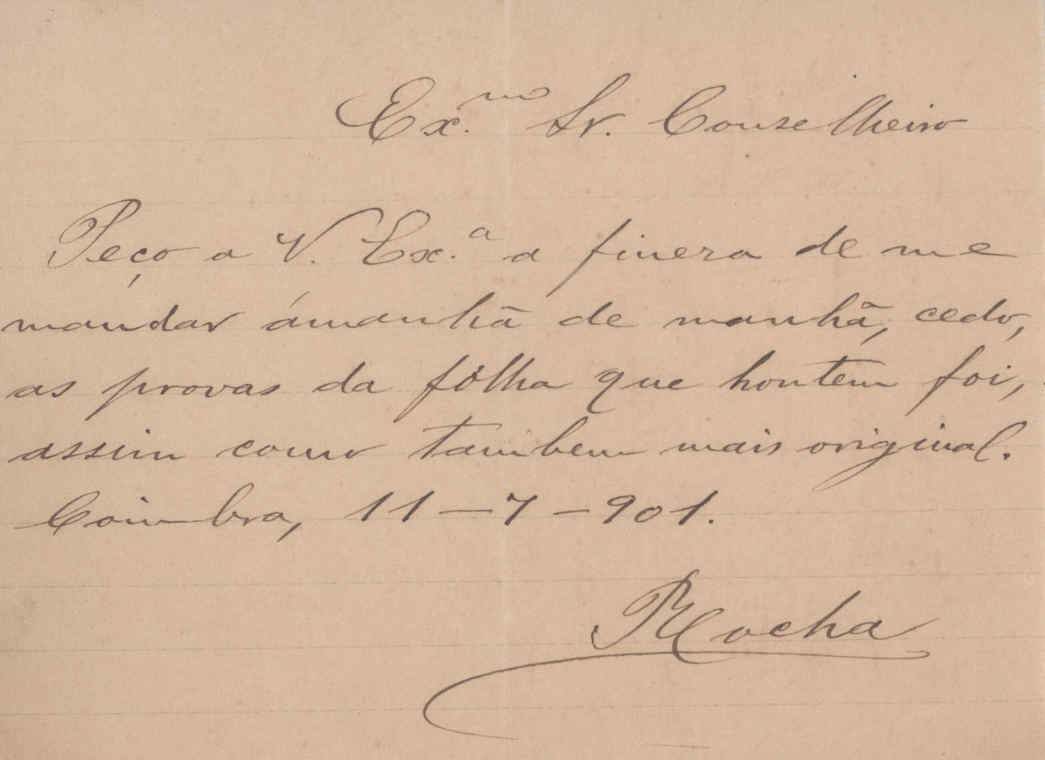 Ex.mo Sr. Conselheiro
Peço a V. Ex.a a fineza de me
mandar ámanhã de manhã, cedo,
as provas da fôlha que hontem foi,
assim como tambem mais original.
Coimbra, 11-7-901.
Rocha